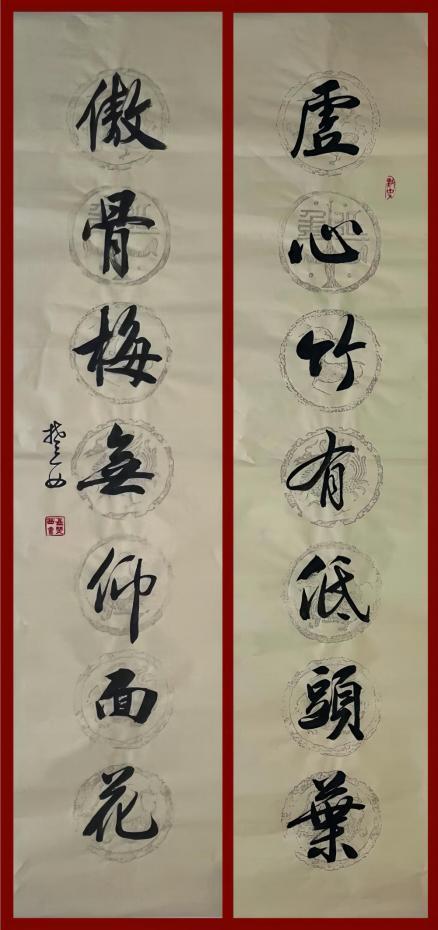 虗心竹有低頭葉
傲骨梅無仰面花